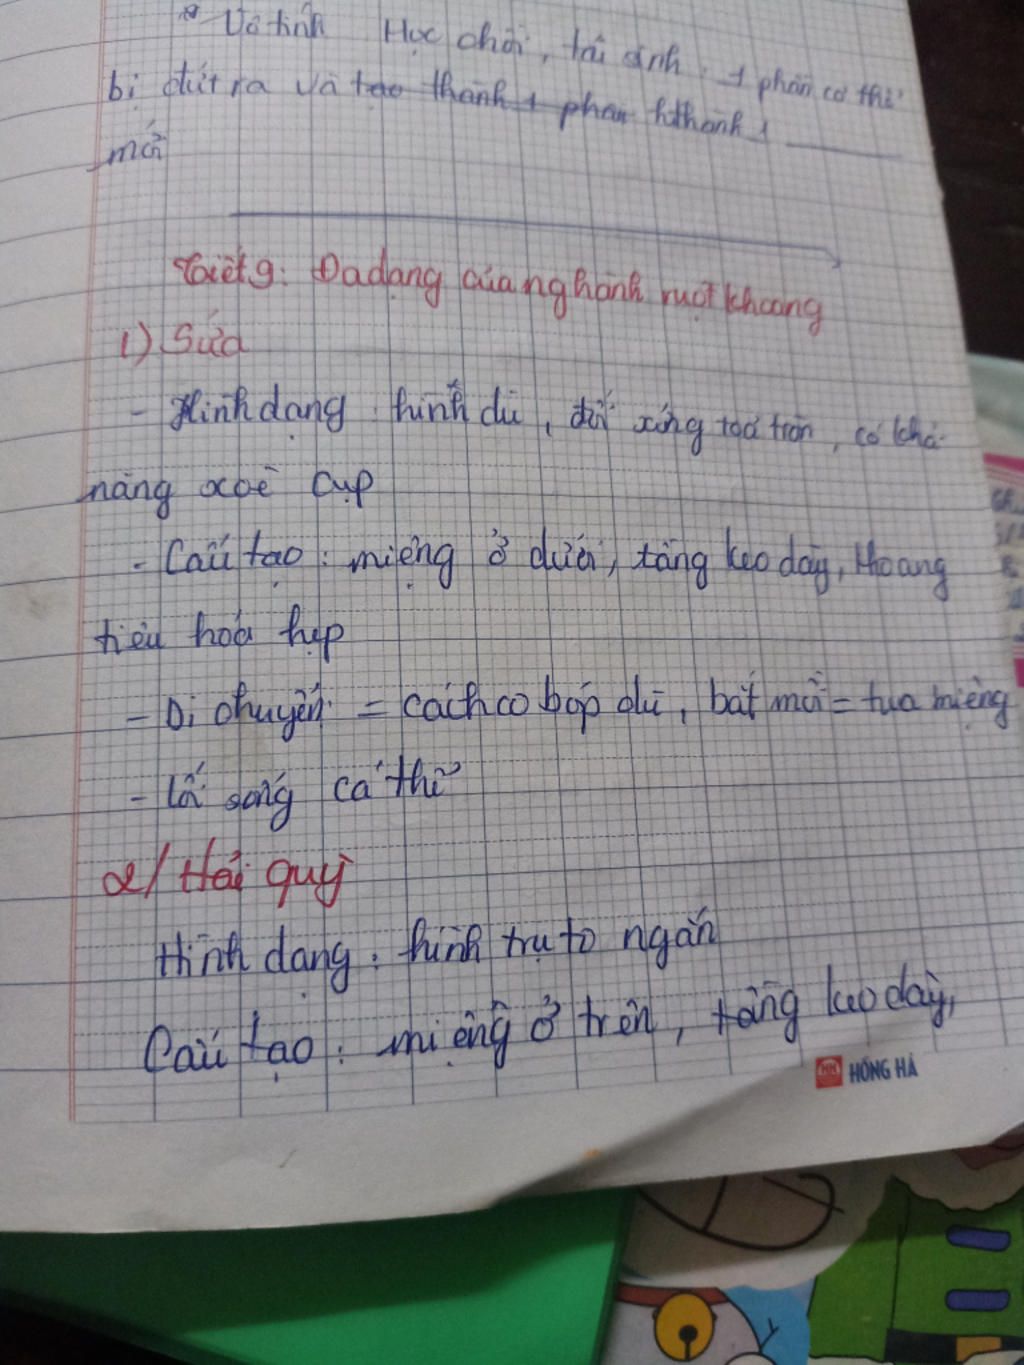 * Vô tính Mọc chồi, tái sinh: 1 phần cơ thể
bị đứt ra và tạo thành 1 phần hthành 1
mới
Tiết 9: Đa dạng của nghành ruột khoang
1) Sứa
- Hình dạng: hình dù, đối xứng toả tròn, có khả
năng xoè cụp
- Cấu tạo: miệng ở dưới, tầng keo dày, khoang
tiêu hoá hẹp
- Di chuyển = cách co bóp dù, bắt mồi = tua miệng
- lối sống cá thể
2/ Hải quỳ
Hình dạng: hình trụ to ngắn
Cấu tạo: miệng ở trên, tầng keo dày,
HỒNG HÀ